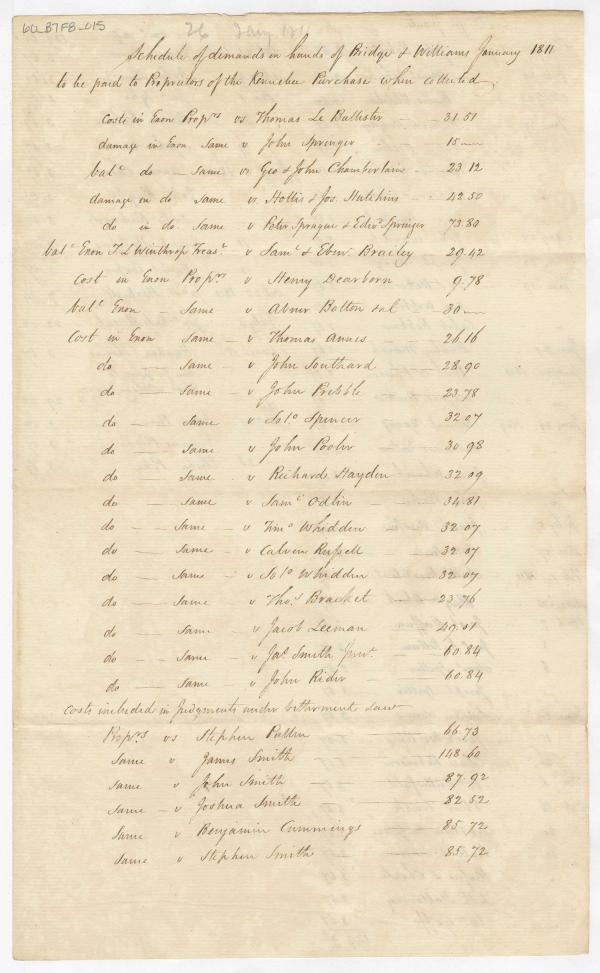 6U_B7F8_015
26 Jany 181
Schedule of demands in hands of Bridge & Williams January 1811
to be paid to Proprietors of the Kennebec Purchase when collected
Costs in Exon Proprs vs Thomas Le Ballister — 31.51
damage in Exon same v John Sprenger — 15 —
balc do — same vs Geo & John Chamberlain — 23.12
damage on do same vs Hollis & Jos. Hutchins — 42.50
do in do same v Peter Sprague & Edwd Springer 73.80
balc Exon T L Winthrop Treasr v Saml & Ebenr Brailey — 29.42
Cost in Exon Proprs v Henry Dearborn — 9.78
balc Exon — same v Abner Bolton & al — 30 —
Cost in Exon same v Thomas Annes — 26.16
do — same v John Southard — 28.90
do — same v John Prebble — 23.78
do — same v Solo Spencer — 32.07
do — same v John Pooler — 30.98
do — same v Richard Hayden — 32.09
do — same v Saml Odlin — 34.81
do — same v Timo Whidden — 32.07
do — same v Calven Russell — 32.07
do — same v Solo Whidden — 32.07
do — same v Thos Bracket — 23.76
do — same v Jacob Leeman — 49.51
do — same v Jas Smith Junr — 60.84
do — same v John Rider — 60.84
Costs included in Judgments under betterment Law
Proprs vs Stephen Pullen — 66.73
same v James Smith — 148.60
same v John Smith — 87.92
same v Joshua Smith — 82.52
same v Benjamin Cummings — 85.72
same v Stephen Smith — 85.72